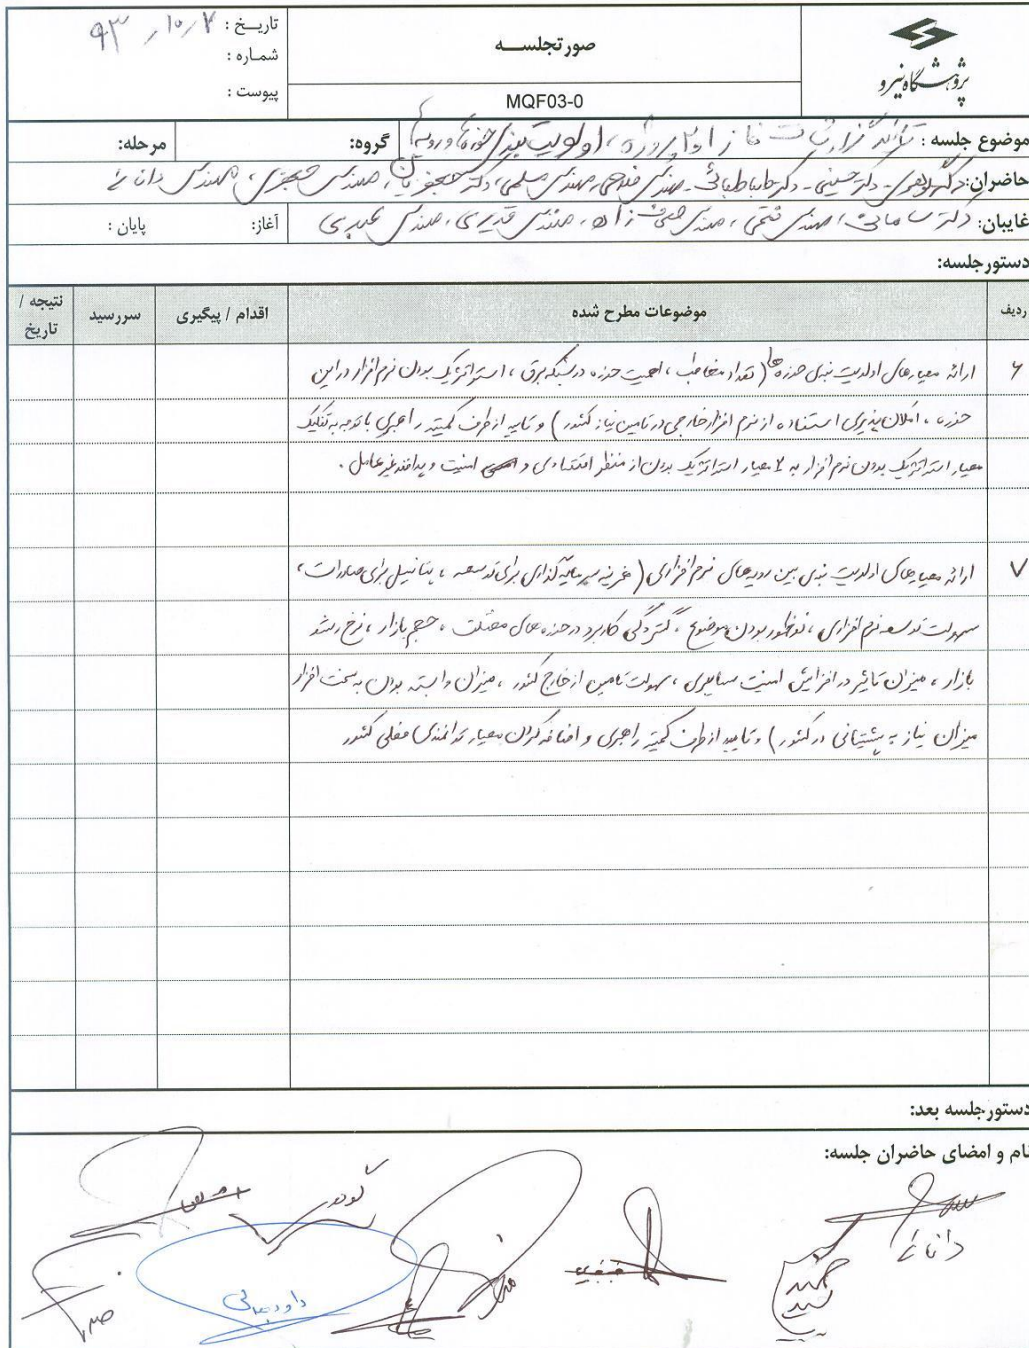 پژوهشگاه نیرو
صورتجلسه
MQF03-0
تاریخ : ۹۳/۱۰/۷
شماره :
پیوست :
موضوع جلسه : گزارشات فاز ۱ و ۲ پروژه ، اولویت بندی حوزه‌ها و رویه‌ها
گروه:
مرحله:
حاضران: دکتر حسینی - دکتر طباطبائی - مهندس فلاحی، مهندس ، دکتر ، مهندس ، مهندس دانائی
غایبان: دکتر سامانی ، مهندس فتحی ، مهندس ، مهندس قدیری ، مهندس
آغاز:
پایان :
دستور جلسه:
ردیف
موضوعات مطرح شده
اقدام / پیگیری
سررسید
نتیجه / تاریخ
۶ ارائه معیارهای اولویت بندی حوزه ها ( تعداد مخاطب ، اهمیت حوزه در شبکه برق ، استراتژیک بودن نرم افزار در این
حوزه ، امکان پذیری استفاده از نرم افزار خارجی در تامین نیاز کشور ) و تایید از طرف کمیته راهبری با توجه به تفکیک
معیار استراتژیک بودن نرم افزار به ۲ معیار استراتژیک بودن از منظر اقتصادی و امنیت و پدافند غیر عامل .
۷ ارائه معیارهای اولویت بندی بین رویه‌های نرم افزاری ( هزینه سرمایه گذاری برای توسعه ، پتانسیل برای صادرات ،
سهولت توسعه نرم افزاری ، نوظهور بودن موضوع ، گستردگی کاربرد در حوزه های مختلف ، حجم بازار ، نرخ رشد
بازار ، میزان تاثیر در افزایش امنیت سایبری ، سهولت تامین از خارج کشور ، میزان وابسته بودن به سخت افزار
میزان نیاز به پشتیبانی در کشور ) و تایید از طرف کمیته راهبری و اضافه کردن معیار توانمندی فعلی کشور
دستور جلسه بعد:
نام و امضای حاضران جلسه:
دانائی